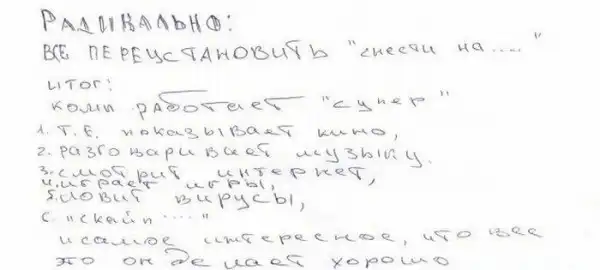 РАДИКАЛЬНО:
ВСЕ ПЕРЕУСТАНОВИТЬ "снести на...."
итог:
комп работает "супер"
1. Т.Е. показывает кино,
2. разговаривает музыку.
3. смотрит интернет,
4. играет игры,
5. ловит вирусы,
6. "скайп ...."
и самое интересное, что все
это он делает хорошо